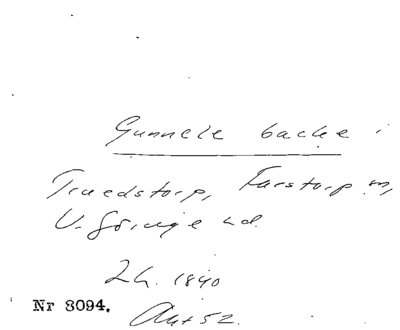 Gunnele backe i
Truedstorp, Farstorp sn,
V. Göinge hd.
Lh. 1840
Nr 8094.
Akt 52.